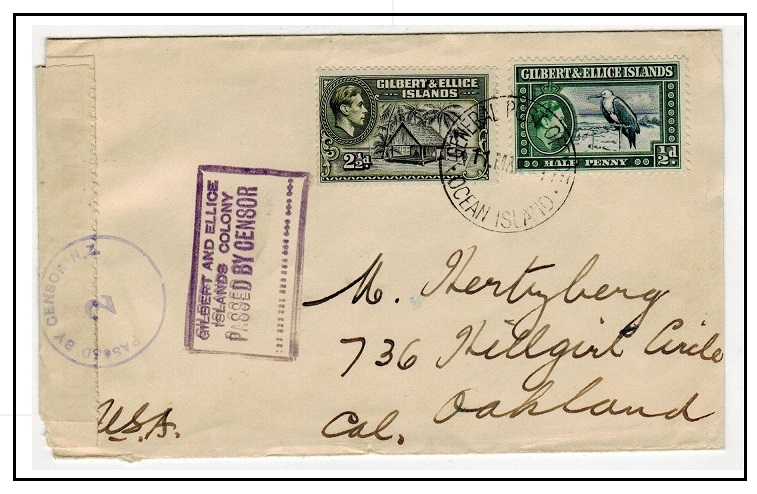 GILBERT & ELLICE
ISLANDS
2½d.
GILBERT & ELLICE ISLANDS
HALF PENNY
½d.
GENERAL POST
OCEAN ISLAND
GILBERT AND ELLICE
ISLANDS COLONY
PASSED BY CENSOR
PASSED BY CENSOR N.Z.
M. Hertzberg
736 Hillgirt Circle
Oakland
Cal.
U.S.A.